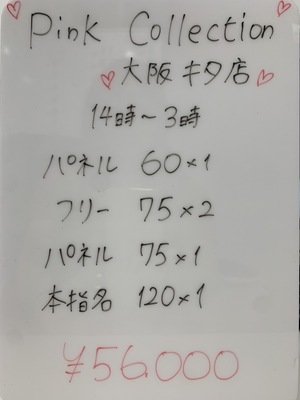 Pink Collection
大阪キタ店
14時～3時
パネル 60×1
フリー 75×2
パネル 75×1
本指名 120×1
¥56.000